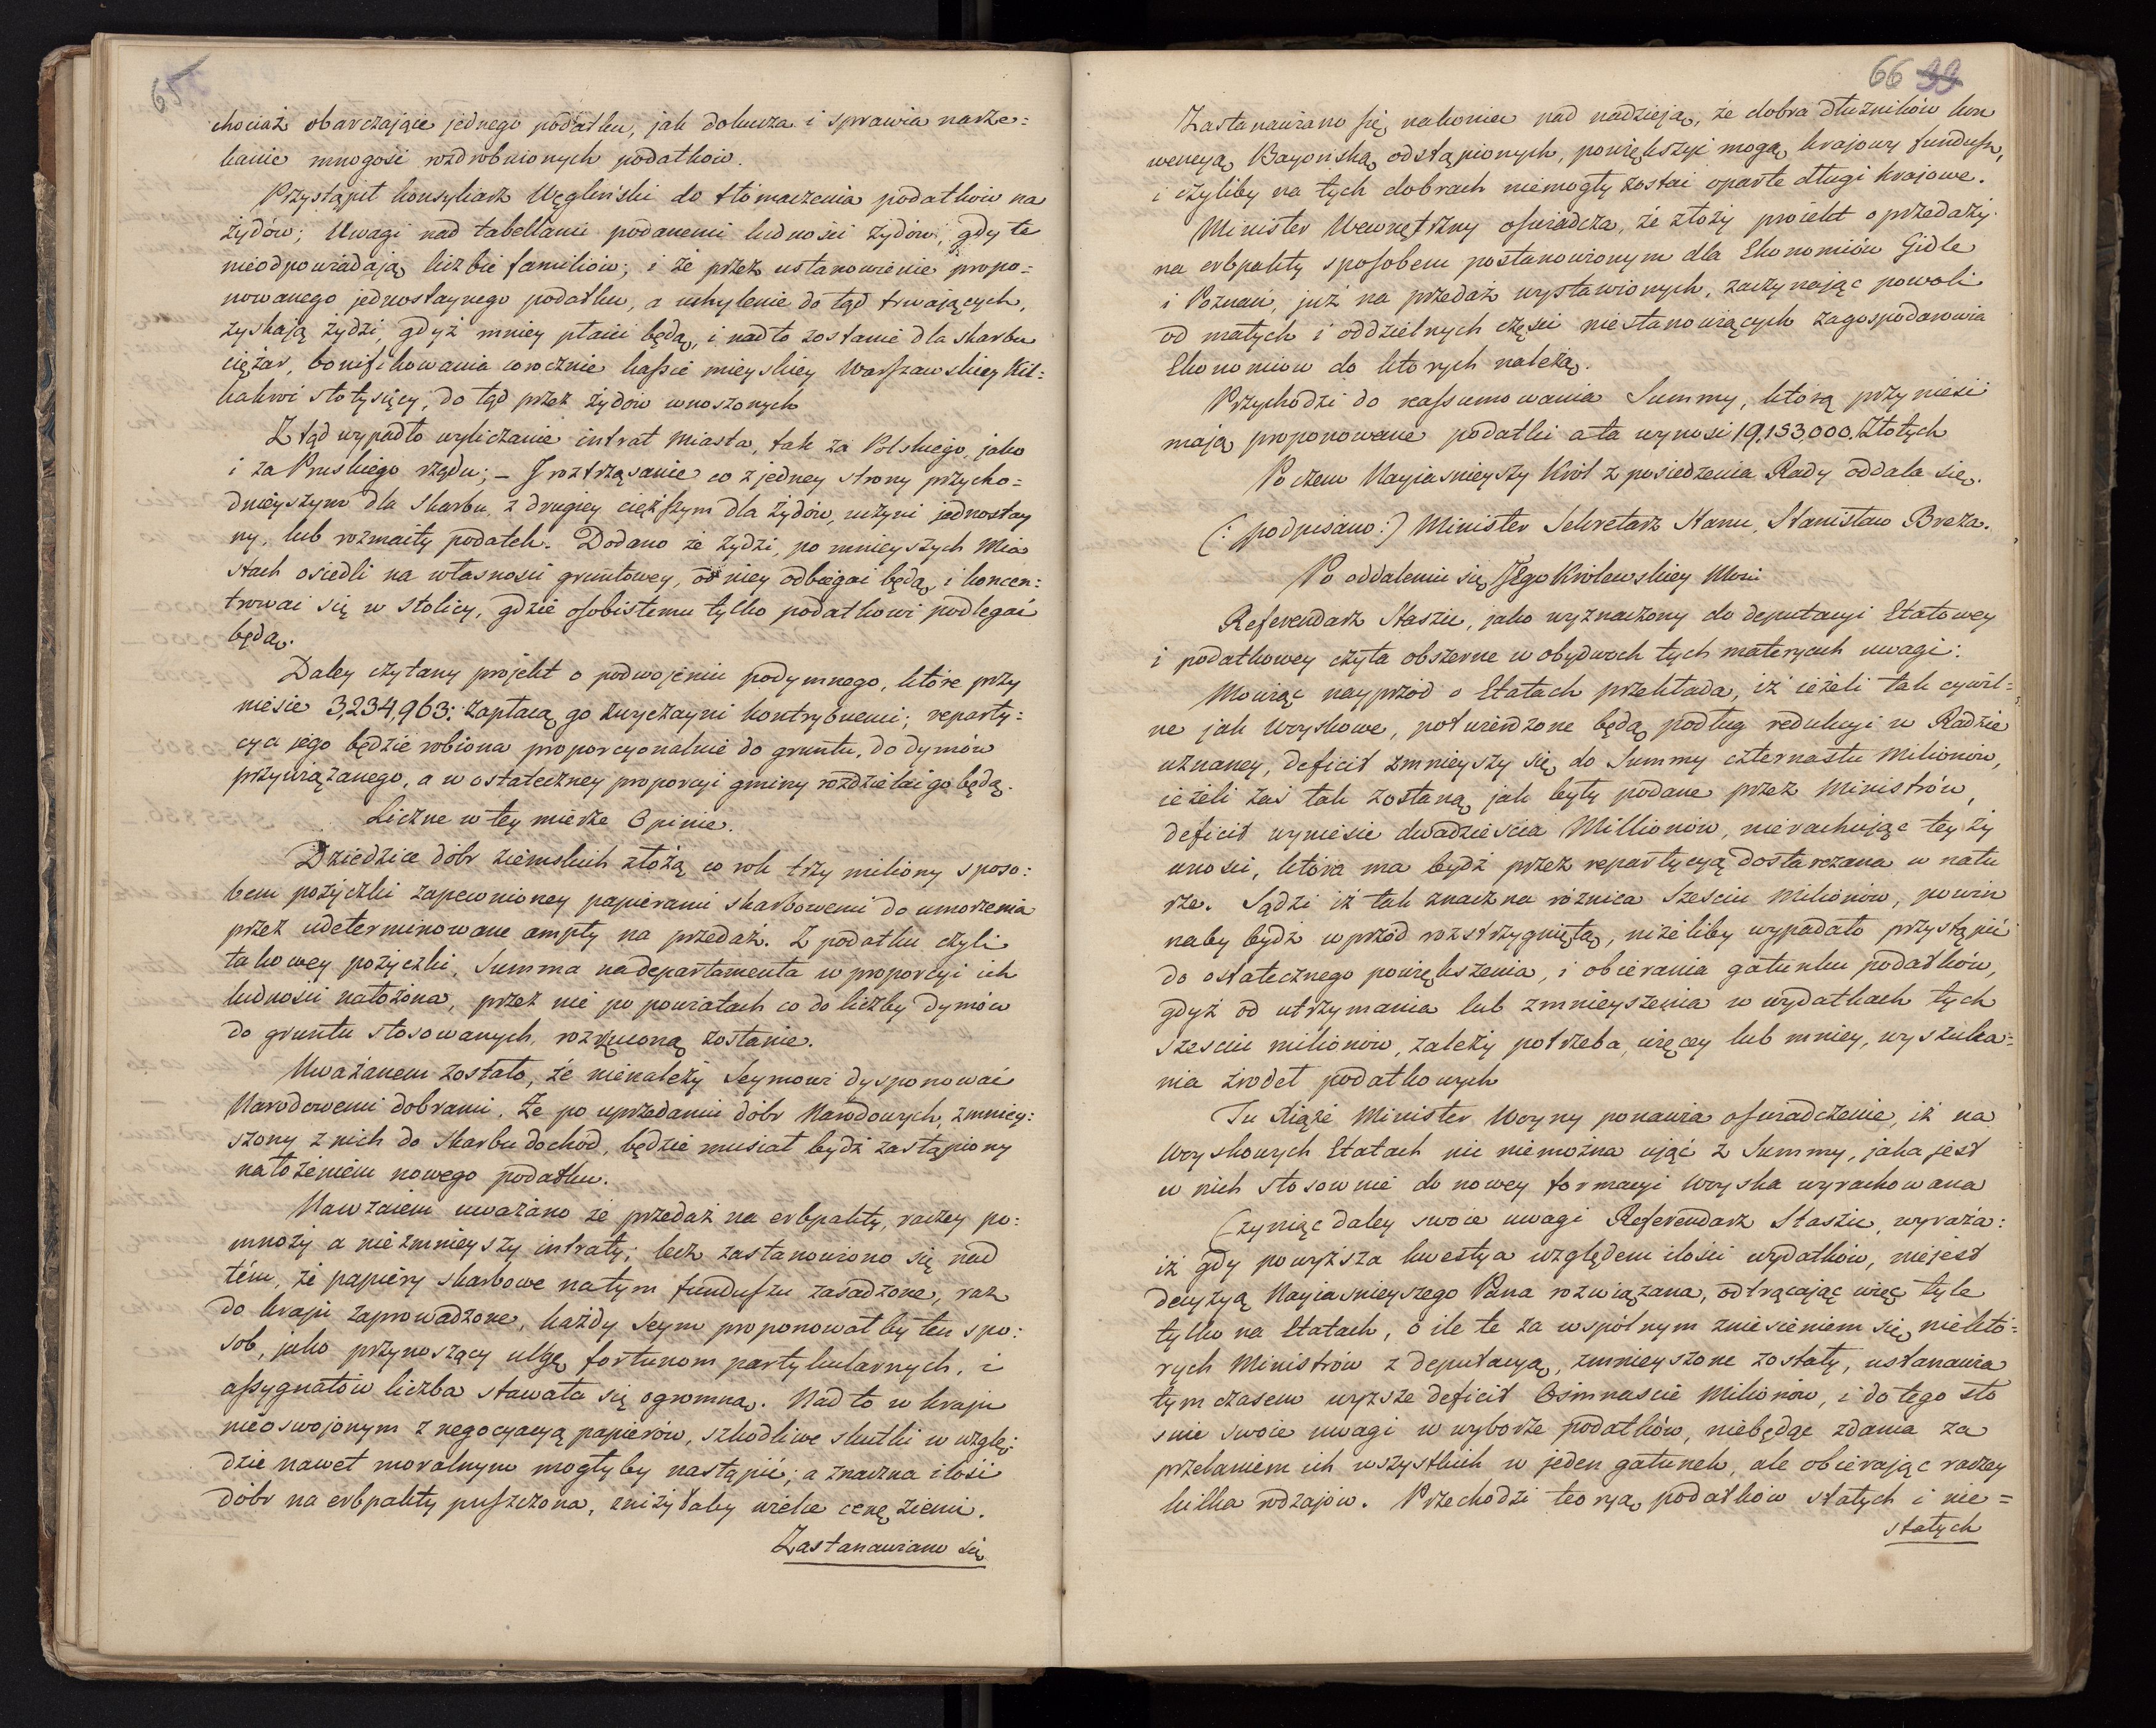 65
chociaż obarczające jednego podatku, jak dokucza i sprawia narze=
kanie mnogość rozdrobnionych podatków.
Przystąpił konsyliarz Węgliński do tłómaczenia podatków na
żydów; Uwagi nad tabellami podanemi ludności żydów, gdy te
nieodpowiadają liczbie familiów; i że przez ustanowienie propo=
nowanego jednostaynego podatku, a uchylenie do tąd trwających,
zyskają żydzi, gdyż mniey płacić będą, i nadto zostanie dla skarbu
ciężar, bonifikowania corocznie kassie mieyskiey Warszawskiey kil=
kakroć stotysięcy, do tąd przez żydów wnoszonych
Z tąd wypadło wyliczanie intrat miasta, tak za Polskiego, jako
i za Pruskiego rządu; – I roztrząsanie co z jedney strony przycho=
dnieyszym dla Skarbu, z drugiey cięższym dla żydów, uczyni jednostay
ny, lub rozmaity podatek. Dodano że żydzi, po mnieyszych Mia
stach osiedli na własności gruntowey, od niey odbiegać będą i koncen:
trować się w stolicy, gdzie osobistemu tylko podatkowi podlegać
będą.
Daley czytany projekt o podwojeniu podymnego, które przy
niesie 3,234,963: zapłacą go zwyczayni kontrybuenci; reparty:
cya jego będzie robiona proporcyonalnie do gruntu, do dymów
przywiązanego, a w ostateczney proporcyi gminy rozdzielać go będą.
Liczne w tey mierze Opinie.
Dziedzice dóbr ziemskich złożą co rok trzy miliony sposo:
bem pożyczki zapewnioney papierami skarbowemi do umorzenia
przez udeterminowane ampty na przedaż. Z podatku czyli
takowey pożyczki, Summa na departamenta w proporcyi ich
ludności nałożona, przez nie po powiatach co do liczby dymów
do gruntu stosowanych, rozrzuconą zostanie.
Uważanem zostało, że nienależy Seymowi dysponować
Narodowemi dobrami. Że po uprzedaniu dóbr Narodowych, zmniey:
szony z nich do Skarbu dochód, będzie musiał bydź zastąpiony
nałożeniem nowego podatku.
Nawzaiem uważano że przedaż na erbpakty, raczey po:
mnoży a nie zmnieyszy intraty; lecz zastanowiono się nad
tém, że papiery skarbowe na tym funduszu zasadzone, raz
do kraju zaprowadzone, każdy Seym proponowałby ten spo:
sob, jako przynoszący ulgę fortunom partykularnych, i
assygnatów liczba stawała się ogromną. Nad to w kraju
nieoswojonym z negocyacyą papierów, szkodliwe skutki w wzglę:
dzie nawet moralnym mogłyby nastąpić; a znaczna ilość
dóbr na erbpakty puszczona, zniżyłaby wielce cenę ziemi.
Zastanawiano się
66 99
Zastanawiano się nakoniec nad nadzieją, że dobra dłużników kon
wencyą Bayońską odstąpionych, powiększyć mogą krajowy fundusz,
i czyliby na tych dobrach niemogły zostać oparte długi krajowe.
Minister Wewnętrzny oświadcza, że złoży projekt o przedaży
na erbpakty sposobem postanowionym dla Ekonomiów Gidle
i Poznań, już na przedaż wystawionych, zaczynając powoli
od małych i oddzielnych części niestanowiących zagospodarowia
Ekonomiow do ktorych należą.
Przychodzi do reassumowania Summy, którą przynieść
mają proponowane podatki a ta wynosi 19,153,000. Złotych
Po czem Nayiasnieyszy Król z posiedzenia Rady oddala się.
(: podpisano :) Minister Sekretarz Stanu, Stanisław Breza.
Po oddaleniu się Jego Królewskiey Mości
Referendarz Staszic, jako wyznaczony do deputacyi Etatowey
i podatkowey czyta obszerne w obydwóch tych materyach uwagi:
Mówiąc nayprzód o Etatach przekłada, iż ieżeli tak cywil=
ne jak woyskowe, potwierdzone będą podług redukcyi w Radzie
uznaney, deficit zmnieyszy się do Summy czternastu Milionów,
ieżeli zaś tak zostaną jak były podane przez Ministrów,
deficit wyniesie dwadzieścia Millionów, nierachując tey ży
wności, która ma bydź przez repartycyą dostarczana w natu
rze. Sądzi iż tak znaczna róznica Sześciu Milionów, powin
naby bydź wprzód rozstrzygnięta, niżeliby wypadało przystąpić
do ostatecznego powiększenia, i obierania gatunku podatków,
gdyż od utrzymania lub zmnieyszenia w wydatkach tych
sześciu milionów, zależy potrzeba, więcey lub mniey, wyszuka=
nia źródeł podatkowych
Tu Xiąże Minister Woyny ponawia oświadczenie, iż na
Woyskowych Etatach nic niemożna ująć z Summy, jaka jest
w nich stosownie do nowey formacyi Woyska wyrachowana
Czyniąc daley swoie uwagi Referendarz Staszic, wyraża:
iż gdy powyższa kwestya względem ilości wydatków, niejest
decyzyą Nayiasnieyszego Pana rozwiązana, odtrącając więc tyle
tylko na Etatach, o ile te za wspólnym zniesieniem się niektó=
rych Ministrów z deputacyą, zmnieyszone zostały, ustanawia
tymczasem wyższe deficit Ośmnaście Milionów, i do tego sto
suie swoie uwagi w wyborze podatków, niebędąc zdania za
przelaniem ich wszystkich w jeden gatunek, ale obierając raczey
kilka rodzajów. Przechodzi teoryą podatków stałych i nie=
stałych